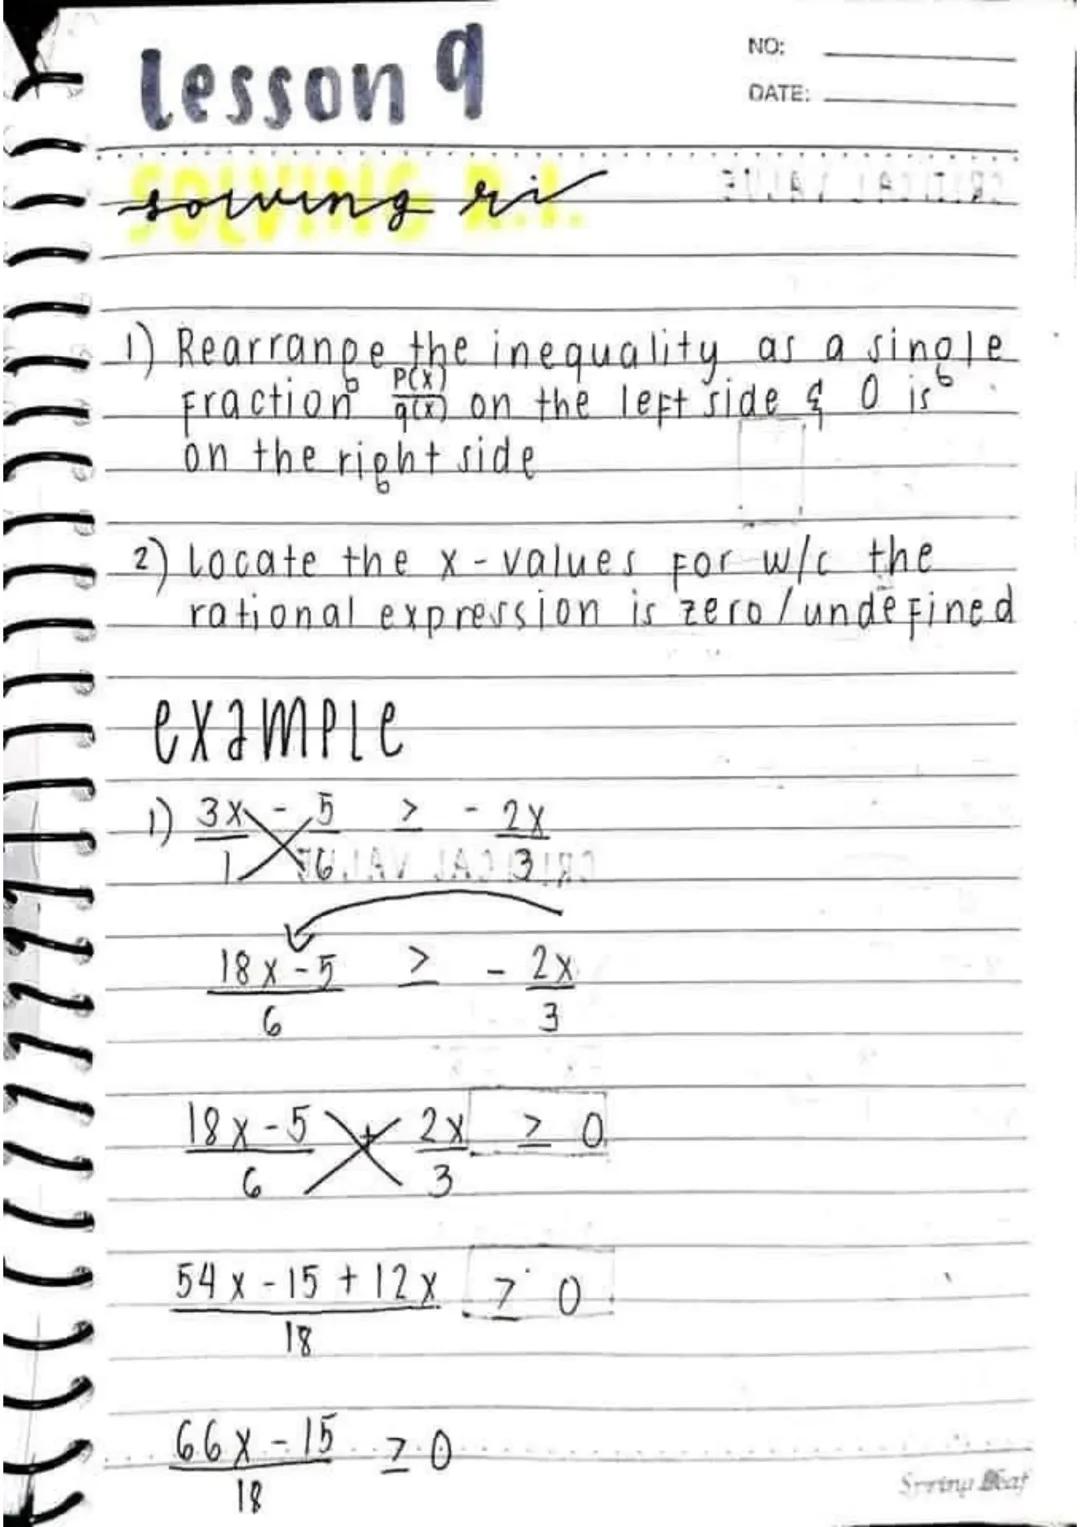 lesson 9
NO:
DATE:
SOLVING R.I.
solving ri
CRITICAL VALUE
1) Rearrange the inequality as a single
fraction P(x)/q(x) on the left side & 0 is
on the right side
2) locate the x-values for w/c the
rational expression is zero/undefined
example
1) 3x/1 - 5/6 ≥ - 2x/3
CRITICAL VALUE
18x-5/6 ≥ - 2x/3
18x-5/6 + 2x/3 ≥ 0
54x-15+12x/18 ≥ 0
66x-15/18 ≥ 0
Spring Leaf